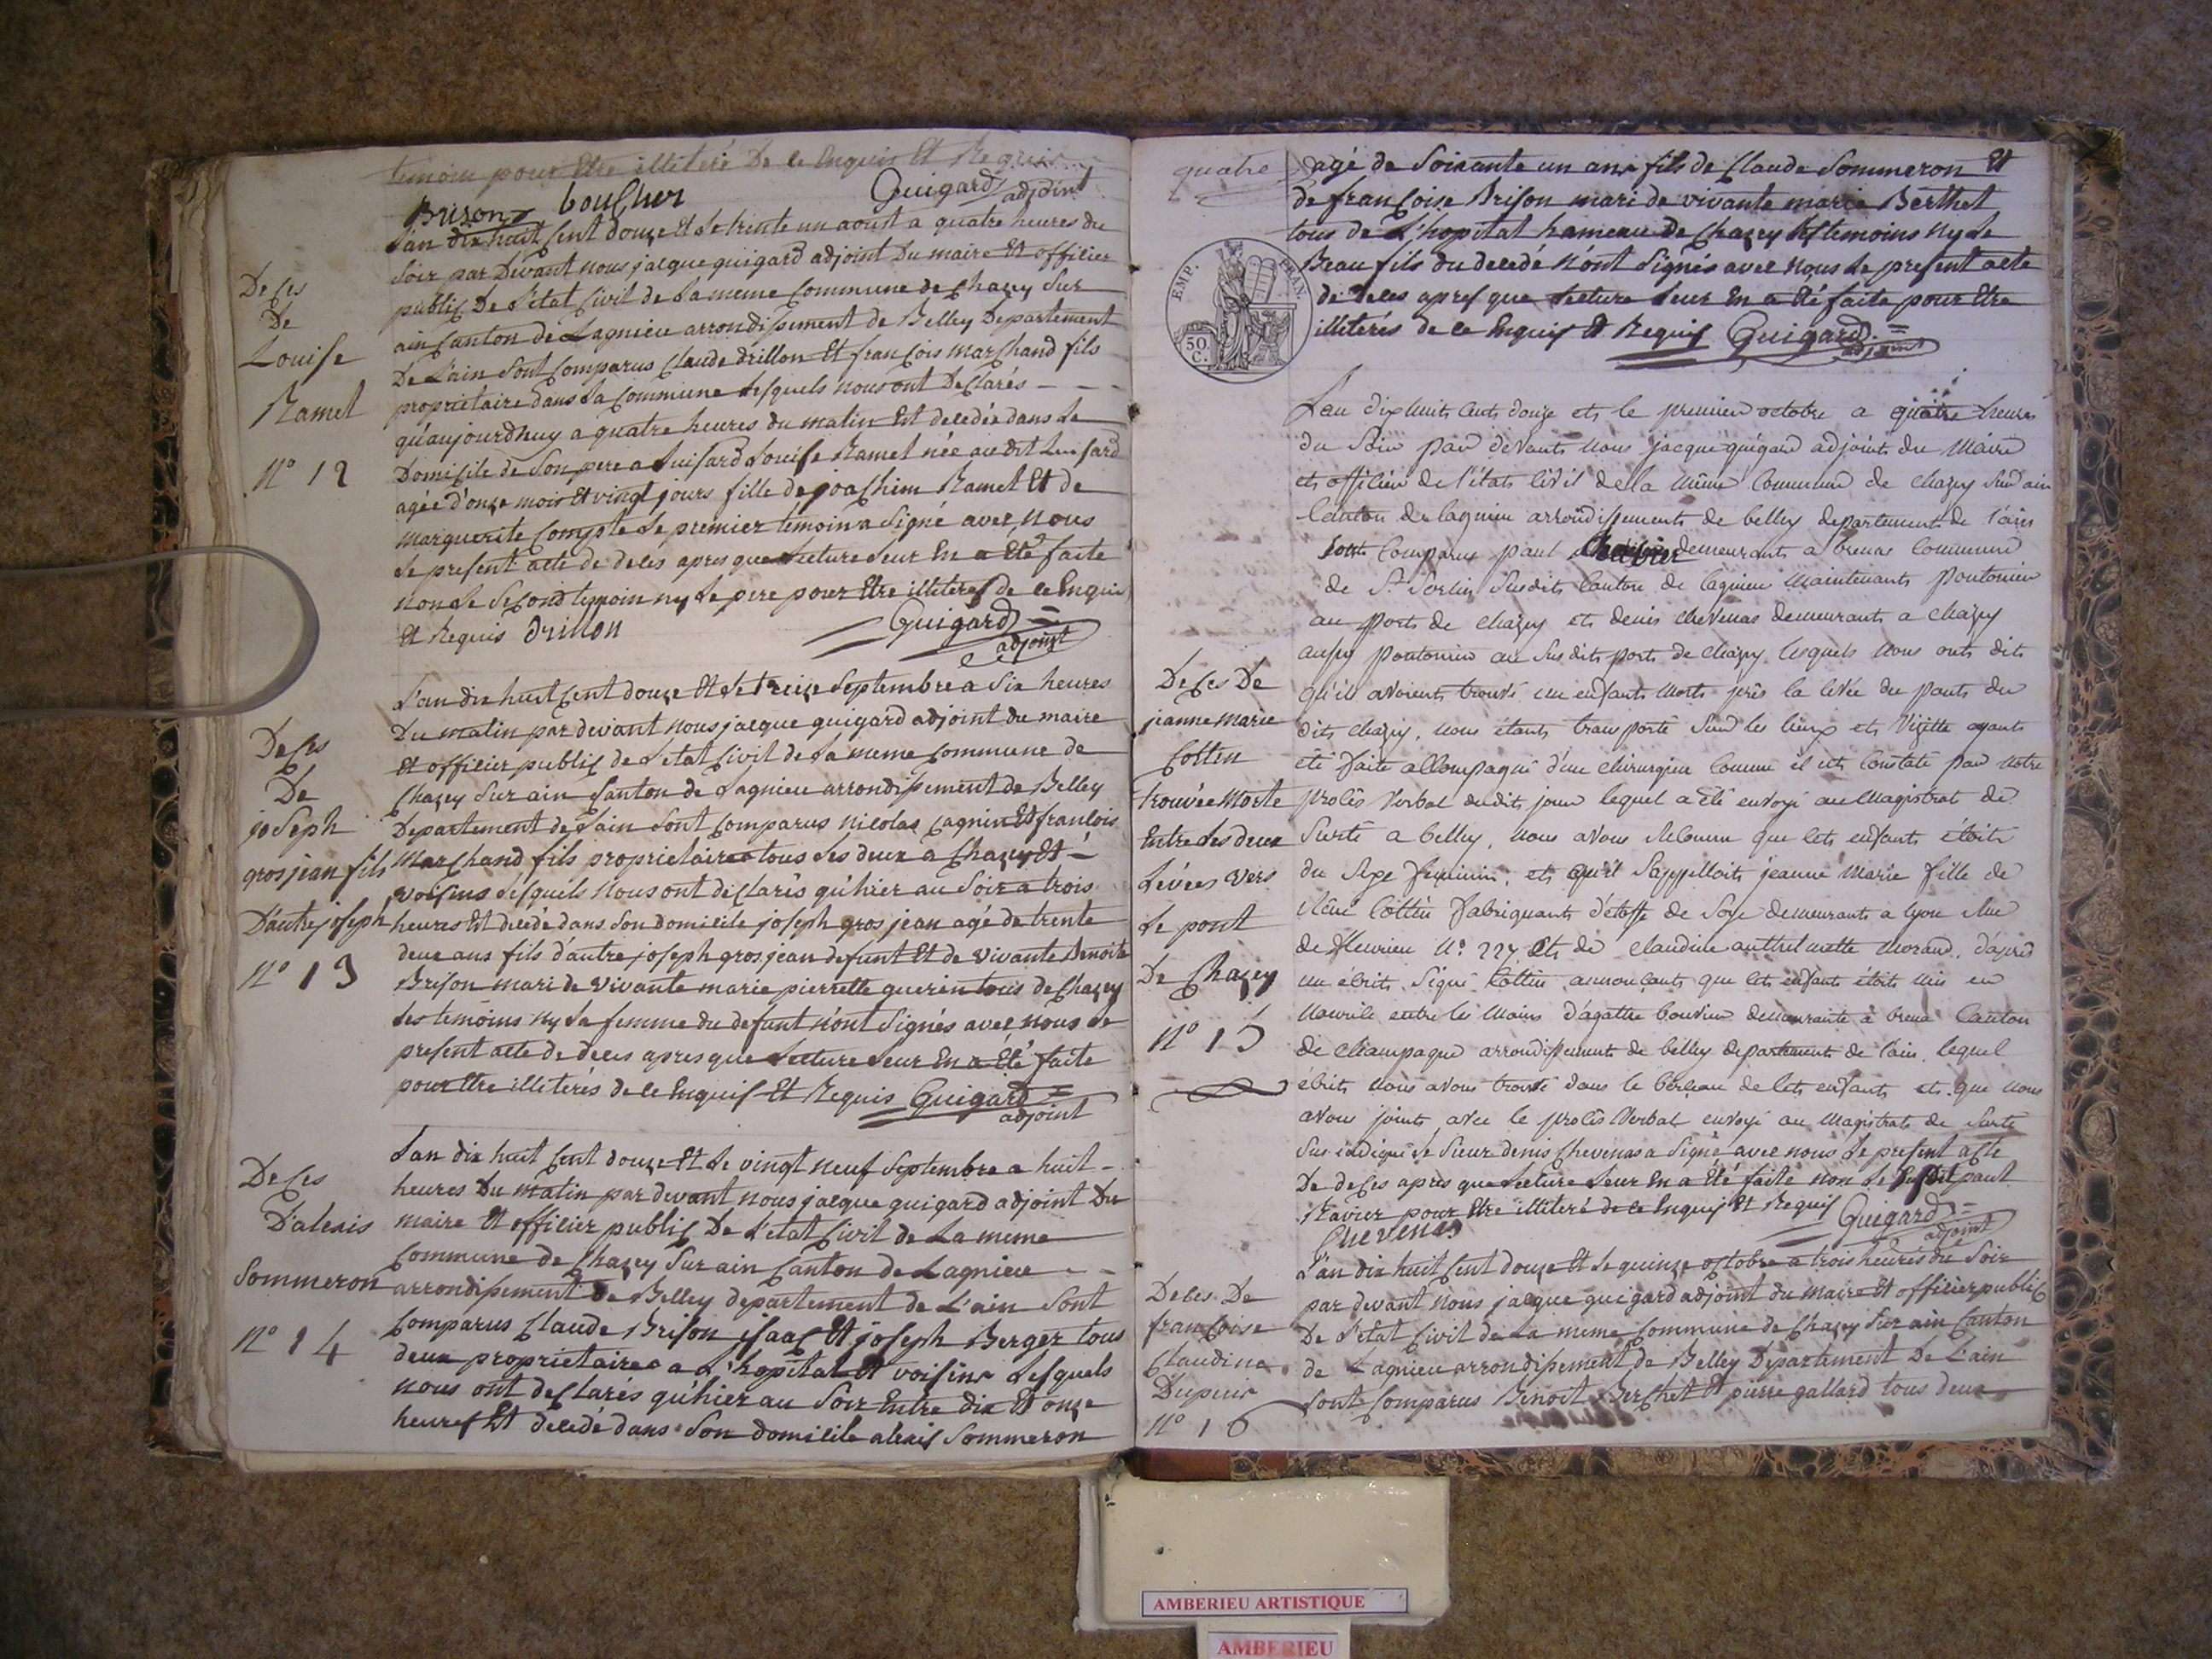 temoin pour Etre illiteré De ce Enquis Et Requis
Brison boucher Guigard adjoint
Deces
De
Louise
Ramel
N° 12
L'an dix huit Cent douze Et Le trente un aout a quatre heures du
Soir par Devant nous jacque guigard adjoint Du maire Et officier
public De L'etat Civil de La meme Commune de Chazey Sur
ain Canton de Lagnieu arrondissement de Belley Departement
De L'ain Sont Comparus Claude drillon Et francois marchand fils
proprietaire dans La Commune Lesquels nous ont Declarés
qu'aujourdhuy a quatre heures du matin Est decedée dans Le
Domicile de Son pere a Luisard Louise Ramel née au dit Luisard
agée d'onze mois Et vingt jours fille de joachim Ramel Et de
marguerite Compte Le premier temoin a Signé avec nous
Le present acte de decés apres que Lecture Leur En a Eté faite
non Le Second temoin ny Le pere pour Etre illiteres de ce Enquis
Et Requis drillon Guigard
adjoint
Deces
De
joseph
grosjean fils
D'autre joseph
N° 13
L'an dix huit Cent douze Et Le treize Septembre a Six heures
Du matin par devant nous jacque guigard adjoint du maire
Et officier public de L'etat Civil de La meme Commune de
Chazey Sur ain Canton de Lagnieu arrondissement de Belley
Departement de L'ain Sont Comparus nicolas cagnin Et francois
Marchand fils proprietaires tous Les deux a Chazey Et
voisins Lesquels nous ont declarés qu'hier au Soir a trois
heures Est decedé dans Son domicile joseph gros jean agé de trente
deux ans fils d'autre joseph gros jean defunt Et de vivante Benoite
Brison mari de vivante marie pierrette guerin tous de Chazey
Les temoins ny La femme du defunt n'ont Signés avec nous Le
present acte de deces apres que Lecture Leur En a Eté faite
pour Etre illiterés de ce Enquis Et Requis Guigard
adjoint
Deces
D'alexis
Sommeron
N° 14
L'an dix huit Cent douze Et Le vingt neuf Septembre a huit
heures Du matin par devant nous jacque guigard adjoint Du
maire Et officier public De L'etat Civil de La meme
Commune de Chazey Sur ain Canton de Lagnieu
arrondissement de Belley departement de L'ain Sont
Comparus Claude Brison isaac Et joseph Berger tous
deux proprietaires a L'hopital Et voisins Lesquels
nous ont declarés qu'hier au Soir Entre dix Et onze
heures Est decedé dans Son domicile alexis Sommeron
quatre
EMP. FRAN.
50
C.
agé de Soixante un ans fils de Claude Sommeron Et
de francoise Brison mari de vivante marie Berthet
tous de L'hopital hameau de Chazey Les temoins ny Le
Beau fils du decedé n'ont Signés avec nous Le present acte
de deces apres que Lecture Leur En a Eté faite pour Etre
illiterés de ce Enquis Et Requis Guigard
adjoint
Deces De
jeanne Marie
Cottin
trouvée Morte
Entre Les deux
Levées vers
Le pont
De Chazey
N° 15
L'an dix huit cent douze et le premier octobre a quatre heures
du Soir par devant nous jacque guigard adjoint du Maire
et officier de l'état Civil de la même Commune de chazey Sur ain
Canton de lagnieu arrondissement de belley departement de l'ain
Sont Comparus paul Ravier demeurant a brenas Commune
de St Sorlin Susdit Canton de lagnieu Maintenant pontonier
au port de chazey et denis chevenas demeurant a chazy
aussy pontonier au Sus dit port de chazey lesquels nous ont dit
qu'ils avoient trouvé un enfant Mort près la levée du pont du
dit chazey, nous étant transporté Sur les lieux et Visitte ayant
été faite accompagné d'un chirurgien Comme il est Constaté par notre
procès Verbal dudit jour lequel a été envoyé au Magistrat de
Surté a belley, nous avons Reconnu que cet enfant étoit
du Sexe feminin, et qu'il S'appelloit jeanne Marie fille de
René Cottin fabriquant d'étoffe de Soye demeurant a lyon Rue
de fleurieu N° 227 et de claudine anthelmette Morand, d'après
un écrit Signé Cottin annonçant que cet enfant étoit Mis en
Nourice entre les Mains d'agatte bouvier demeurante a brena Canton
de champagne arrondissement de belley departement de l'ain, lequel
écrit nous avons trouvé dans le berceau de cet enfant et que nous
avons joint avec le procès Verbal envoyé au Magistrat de Surté
Sus indiqué Le Sieur denis Chevenas a Signé avec nous Le present acte
De deces apres que Lecture Leur En a Eté faite non Le Susdit paul
Ravier pour Etre illiteré de ce Enquis Et Requis Guigard
Chevenas adjoint
Deces De
francoise
Claudine
Dupuis
N° 16
L'an dix huit Cent douze Et Le quinze octobre a trois heures du Soir
par devant nous jacque guigard adjoint du maire Et officier public
De L'etat Civil de La meme Commune de Chazey Sur ain Canton
de Lagnieu arrondissement de Belley Departement De L'ain
Sont Comparus Benoit Berchet Et pierre gallard tous deux
AMBERIEU ARTISTIQUE
AMBERIEU